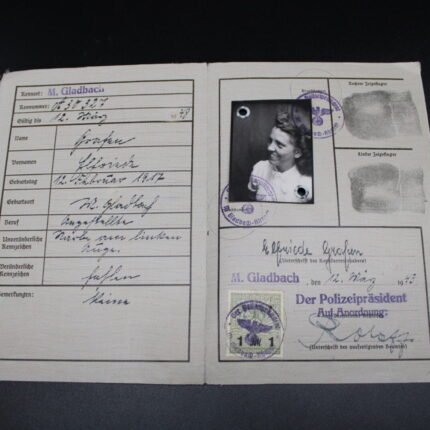 Kennort: M. Gladbach
Kennnummer: A 30 327
Gültig bis 12. März 19
Name Grafen
Vornamen Elfriede
Geburtstag 12. Februar 1917
Geburtsort M. Gladbach
Beruf Angestellte
Unveränderliche Kennzeichen Narbe am linken Auge.
Veränderliche Kennzeichen fehlen
Bemerkungen: Keine
Rechter Zeigefinger
Linker Zeigefinger
Elfriede Grafen
(Unterschrift des Kennkarteninhabers)
M. Gladbach, den 12. März 19
Der Polizeipräsident
Auf Anordnung:
(Unterschrift des ausfertigenden Beamten)
1 RM 1